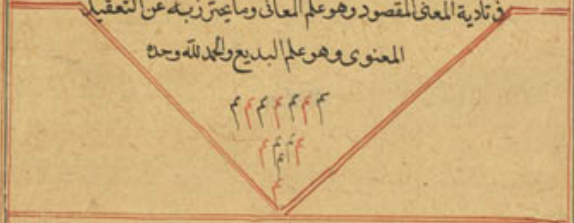 فى تأدية المعنى المقصود وهو علم المعانى وما يحترز به عن التعقيد
المعنوى وهو علم البديع والحمد لله وحده
م م م م م م م
م م م م
م